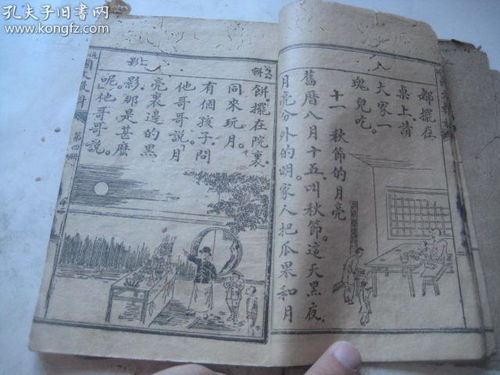 孔夫子旧书网
www.kongfz.com
都擺在
桌上.請
大家一
塊兒吃.
十一 秋節的月亮
舊曆八月十五.叫秋節.這天黑夜.
月亮分外的明.家人把瓜果和月
餅
餅.擺在院裏.
同來玩月.
有個孩子.問
他哥哥說.月
亮裏邊的黑
影.那是甚麼
呢.他哥哥說.
影